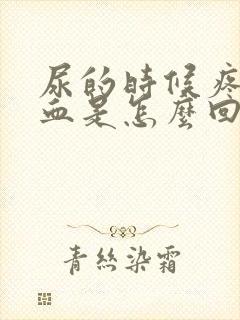 尿的時候疼
血是怎麼回
青絲染霜